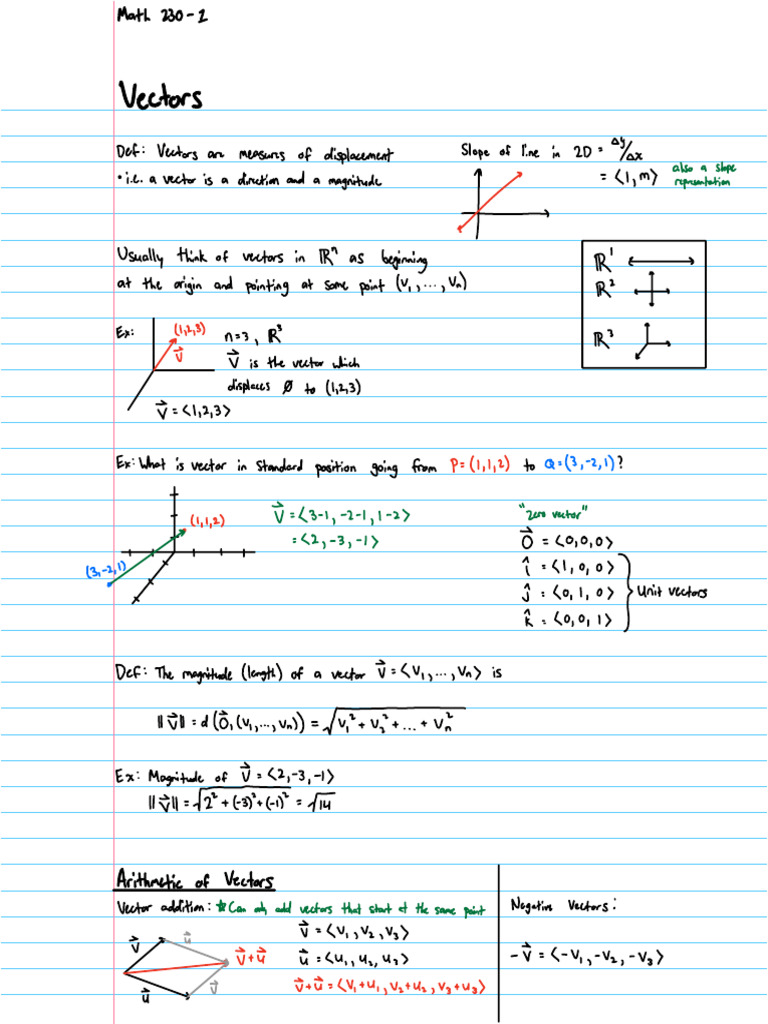 Math 230-1
Vectors
Def: Vectors are measures of displacement
• i.e. a vector is a direction and a magnitude
Slope of line in 2D = Δy/Δx
= ⟨1, m⟩ also a slope representation
Usually think of vectors in ℝⁿ as beginning
at the origin and pointing at some point (v₁, ..., vₙ)
ℝ¹
ℝ²
ℝ³
Ex:
(1,2,3)
v⃗
n=3, ℝ³
v⃗ is the vector which
displaces Ø to (1,2,3)
v⃗ = ⟨1,2,3⟩
Ex: What is vector in standard position going from P=(1,1,2) to Q=(3,-2,1)?
(1,1,2)
(3,-2,1)
v⃗ = ⟨3-1, -2-1, 1-2⟩
= ⟨2, -3, -1⟩
"zero vector"
0⃗ = ⟨0,0,0⟩
î = ⟨1,0,0⟩
ĵ = ⟨0,1,0⟩ Unit vectors
k̂ = ⟨0,0,1⟩
Def: The magnitude (length) of a vector v⃗ = ⟨v₁, ..., vₙ⟩ is
‖v⃗‖ = d(0⃗, (v₁, ..., vₙ)) = √(v₁² + v₂² + ... + vₙ²)
Ex: Magnitude of v⃗ = ⟨2, -3, -1⟩
‖v⃗‖ = √(2² + (-3)² + (-1)²) = √14
Arithmetic of Vectors
Vector addition: * Can only add vectors that start at the same point
v⃗
u⃗
v⃗+u⃗
u⃗
v⃗
v⃗ = ⟨v₁, v₂, v₃⟩
u⃗ = ⟨u₁, u₂, u₃⟩
v⃗+u⃗ = ⟨v₁+u₁, v₂+u₂, v₃+u₃⟩
Negative Vectors:
-v⃗ = ⟨-v₁, -v₂, -v₃⟩